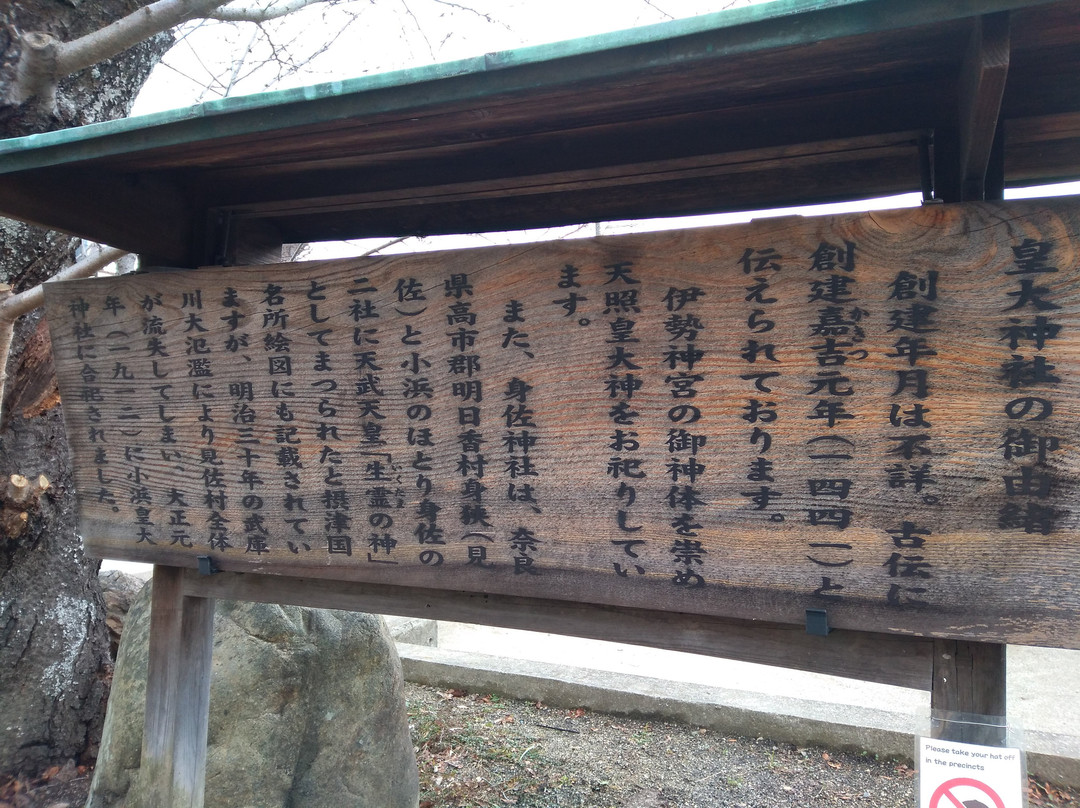 皇大神社の御由緒
創建年月は不詳。古伝に
創建嘉吉元年（一四四一）と
かきつ
伝えられております。
伊勢神宮の御神体を崇め
天照皇大神をお祀りしてい
ます。
また、身佐神社は、奈良
県高市郡明日香村身狭（見
佐）と小浜のほとり身佐の
二社に天武天皇「生霊の神」
いくたま
としてまつられたと摂津国
名所絵図にも記載されてい
ますが、明治三十年の武庫
川大氾濫により見佐村全体
が流失してしまい、大正元
年（一九一二）に小浜皇大
神社に合祀されました。
Please take your hat off
in the precincts